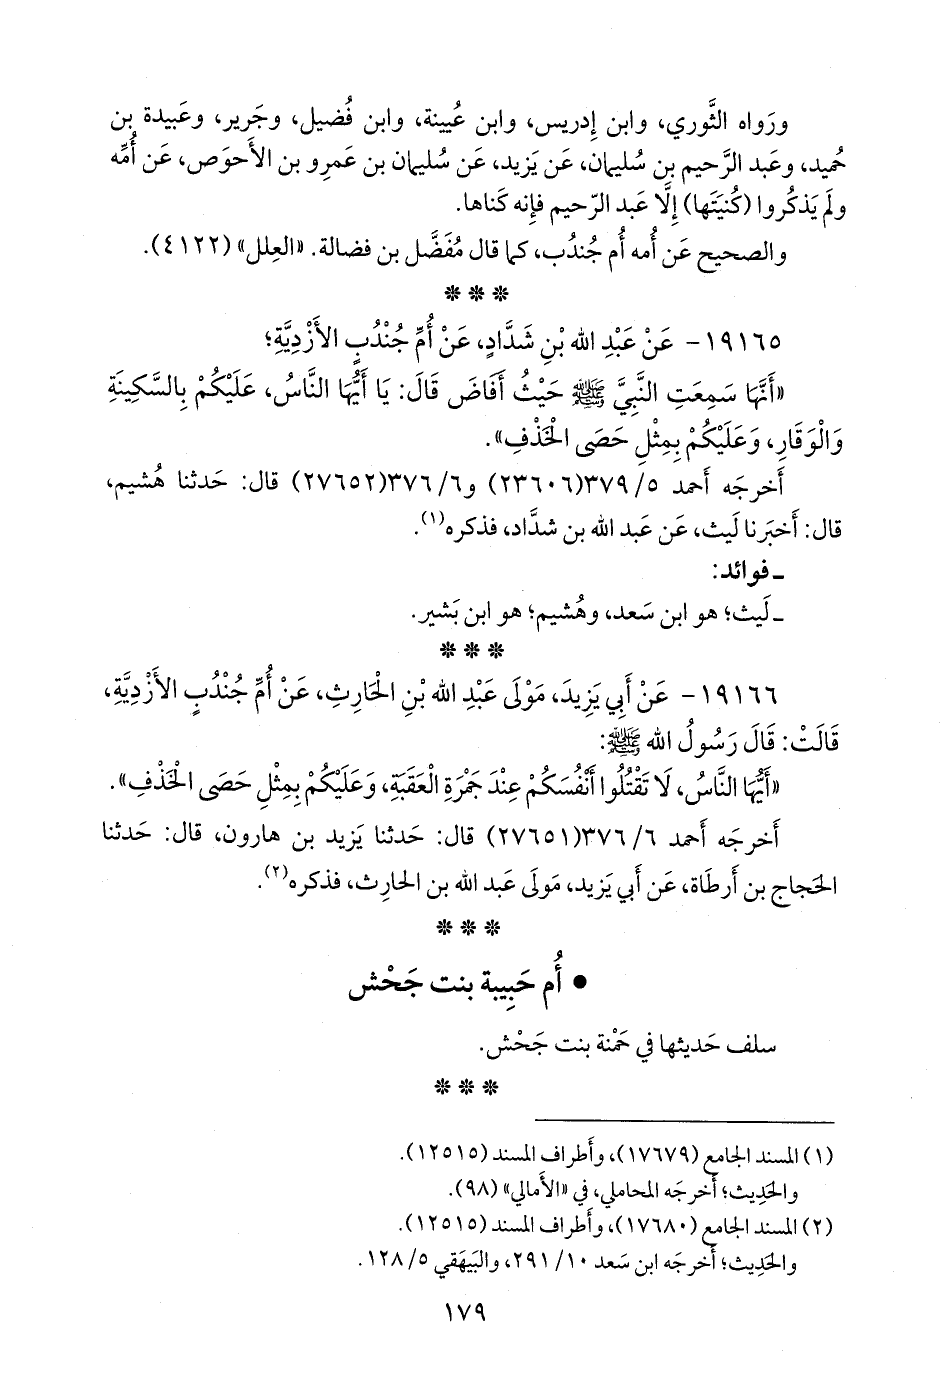 ورَواه الثَّوري، وابن إِدريس، وابن عُيينة، وابن فُضيل، وجَرير، وعَبيدة بن
حُميد، وعَبد الرَّحيم بن سُليمان، عَن يَزيد، عَن سُليمان بن عَمرو بن الأَحوَص، عَن أُمِّه
ولم يَذكُروا (كُنيَتَها) إِلَّا عَبد الرّحيم فإِنه كَناها.
والصحيح عَن أُمه أُم جُندُب، كما قال مُفَضَّل بن فضالة. «العِلل» (٤١٢٢).
* * *
١٩١٦٥- عَنْ عَبْدِ الله بْنِ شَدَّادٍ، عَنْ أُمِّ جُنْدُبٍ الأَزْدِيَّةِ؛
«أَنَّهَا سَمِعَتِ النَّبِيَّ ﷺ حَيْثُ أَفَاضَ قَالَ: يَا أَيُّهَا النَّاسُ، عَلَيْكُمْ بِالسَّكِينَةِ
وَالْوَقَارِ، وَعَلَيْكُمْ بِمِثْلِ حَصَى الْخَذْفِ».
أَخرجَه أَحمد ٥/ ٣٧٩(٢٣٦٠٦) و٦/ ٣٧٦(٢٧٦٥٢) قال: حَدثنا هُشيم،
قال: أَخبَرنا لَيث، عَن عَبد الله بن شدَّاد، فذكره(١).
ـ فوائد:
ـ لَيث؛ هو ابن سَعد، وهُشيم؛ هو ابن بَشير.
* * *
١٩١٦٦- عَنْ أَبِي يَزِيدَ، مَوْلَى عَبْدِ الله بْنِ الْحَارِثِ، عَنْ أُمِّ جُنْدُبٍ الأَزْدِيَّةِ،
قَالَتْ: قَالَ رَسُولُ الله ﷺ:
«أَيُّهَا النَّاسُ، لَا تَقْتُلُوا أَنْفُسَكُمْ عِنْدَ جَمْرَةِ الْعَقَبَةِ، وَعَلَيْكُمْ بِمِثْلِ حَصَى الْخَذْفِ».
أَخرجَه أَحمد ٦/ ٣٧٦(٢٧٦٥١) قال: حَدثنا يَزيد بن هارون، قال: حَدثنا
الحَجاج بن أَرطَاة، عَن أَبي يَزيد، مَولَى عَبد الله بن الحارِث، فذكره(٢).
* * *
• أُم حَبِيبة بنت جَحْش
سلف حَديثها في حَمْنة بنت جَحْش.
* * *
(١) المسند الجامع (١٧٦٧٩)، وأَطراف المسند (١٢٥١٥).
والحَدِيث؛ أَخرجَه المحاملي، في «الأَمالي» (٩٨).
(٢) المسند الجامع (١٧٦٨٠)، وأَطراف المسند (١٢٥١٥).
والحَدِيث؛ أَخرجَه ابن سَعد ١٠/ ٢٩١، والبَيهَقي ٥/ ١٢٨.
١٧٩